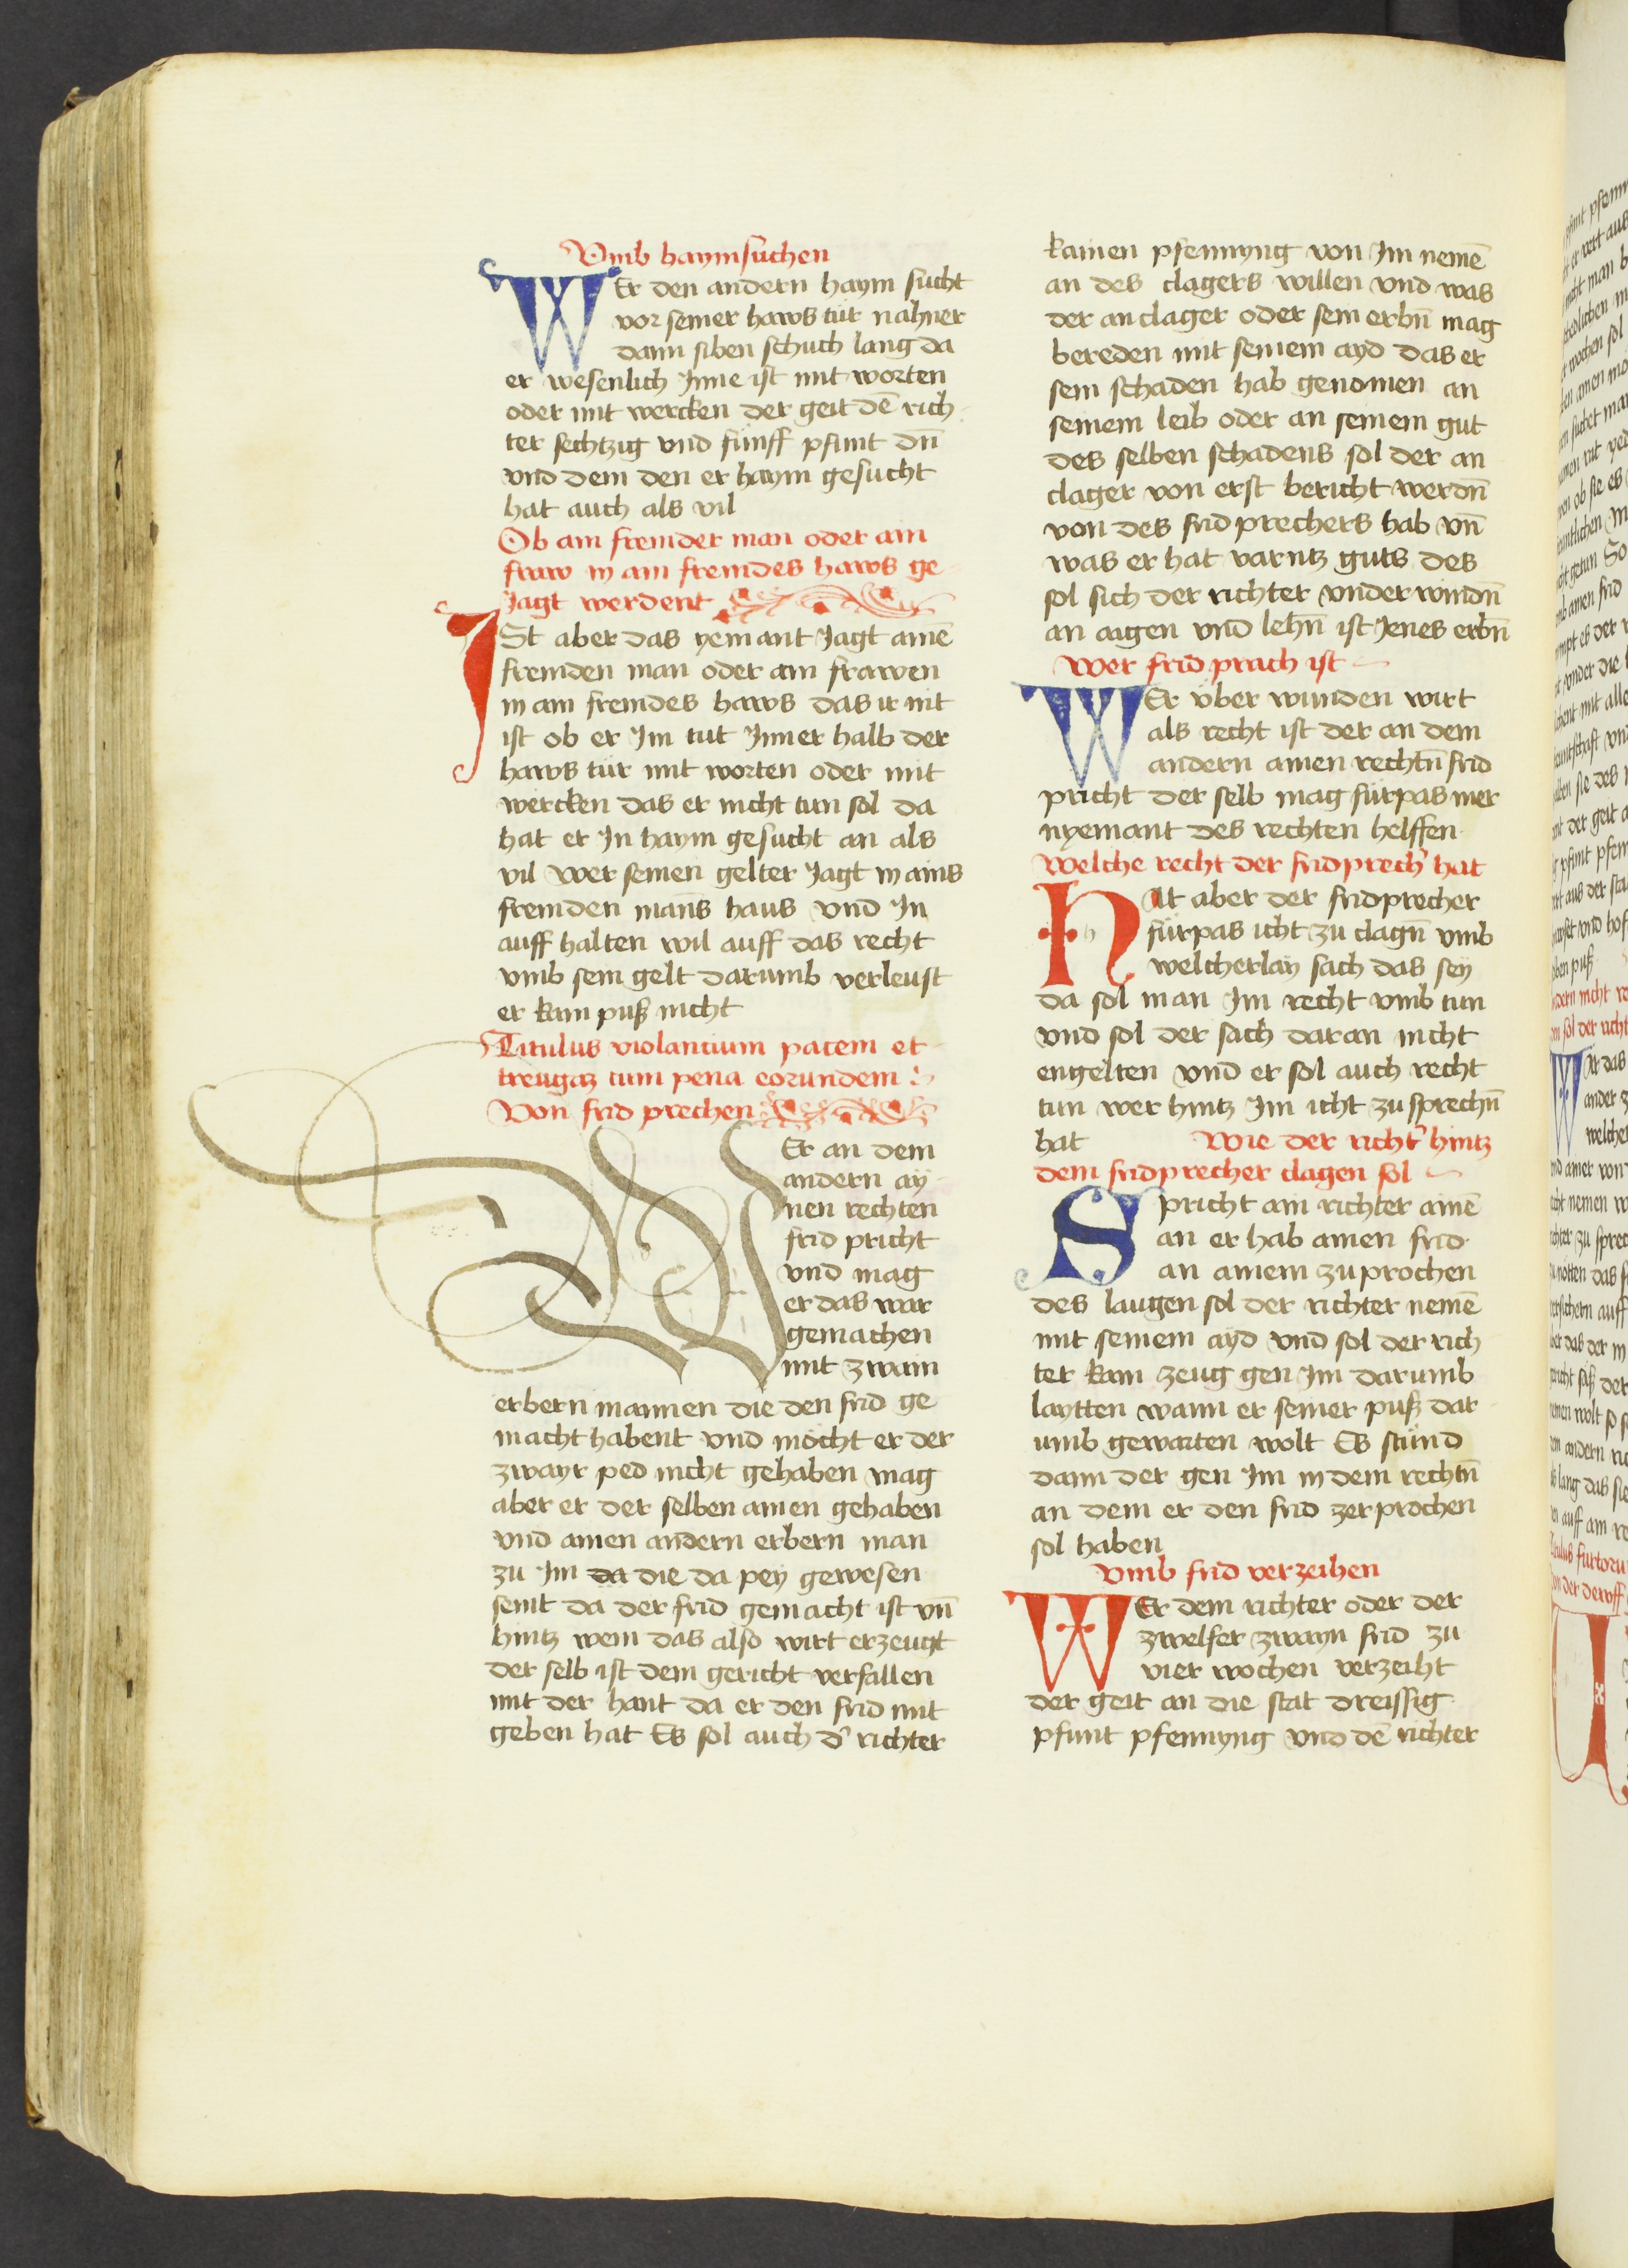 Vmb haymsuchen
WEr den andern haym sucht
vor seiner haws tür nahner
dann siben schuch lang da
er wesenlich Inne ist mit worten
oder mit wercken der geit dē rich
ter sechtzig vnd fünff pfunt dn̄
vnd dem den er haym gesucht
hat auch als vil
Ob ain fremder man oder ain
fraw in ain fremdes haws ge
Jagt werdent
ISt aber das yemant Jagt ainē
fremden man oder ain frawen
in ain fremdes haws das ir nit
ist ob er Im tut Inner halb der
haws tür mit worten oder mit
wercken das er nicht tun sol da
hat er In haym gesucht an als
vil wer seinen gelter Jagt in ains
fremden mans haus vnd In
auff halten wil auff das recht
vmb sein gelt darumb verleust
er kain puß nicht
Titulus violancium pacem et
treugaz cum pena eorundem
Von frid prechen
WEr an dem
andern ay
nen rechten
frid pricht
vnd mag
er das war
gemachen
mit zwain
erbern mannen die den frid ge
macht habent vnd möcht er der
zwayr ped nicht gehaben mag
aber er der selben ainen gehaben
vnd ainen andern erbern man
zu Im da die da pey gewesen
seint da der frid gemacht ist vn̄
hintz wem das also wirt erzeugt
der selb ist dem gericht verfallen
mit der hant da er den frid mit
geben hat Es sol auch d' richter
kainen pfennyng von Im nemē
an des clagers willen vnd was
der anclager oder sein erbn̄ mag
bereden mit seinem ayd das er
sein schaden hab genomen an
seinem leib oder an seinem gut
des selben schadens sol der an
clager von erst bericht werdn̄
von des frid prechers hab vn̄
was er hat varntz guts des
sol sich der richter vnder windn̄
an aigen vnd lehn̄ ist Jenes erbn̄
wer frid prach ist
WEr über wunden wirt
als recht ist der an dem
andern ainen rechtn̄ frid
pricht der selb mag fürpas mer
nyemant des rechten helffen
welche recht der fridprech' hat
HAt aber der fridprecher
fürpas icht zu clagn̄ vmb
welcherlay sach das sey
da sol man Im recht vmb tun
vnd sol der sach daran nicht
engelten vnd er sol auch recht
tun wer hintz Im icht zu sprechn̄
hat wie der richt' hintz
dem fridprecher clagen sol
Spricht ain richter ainē
an er hab ainen frid
an ainem zuprochen
des laugen sol der richter nemē
mit seinem ayd vnd sol der rich
ter kain zeug gen Im darumb
laytten wann er seiner puß dar
umb gewarten wolt Es stünd
dann der gen Im in dem rechtn̄
an dem er den frid zerprochen
sol haben
vmb frid verzeihen
WEr dem richter oder der
zwelfer zwayn frid zu
vier wochen verzeiht
der geit an die stat dreissig
pfunt pfennyng vnd dē richter